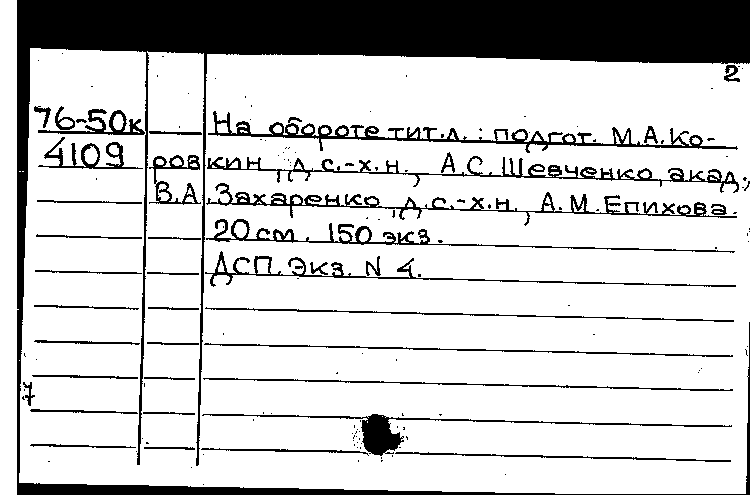 2
76-50к На обороте тит.л. : подгот. М.А.Ко-
4109 ровкин, д.с.-х.н., А.С.Шевченко, акад.,
В.А.Захаренко, д.с.-х.н., А.М.Епихова.
20 см. 150 экз.
ДСП. Экз. N 4.
7